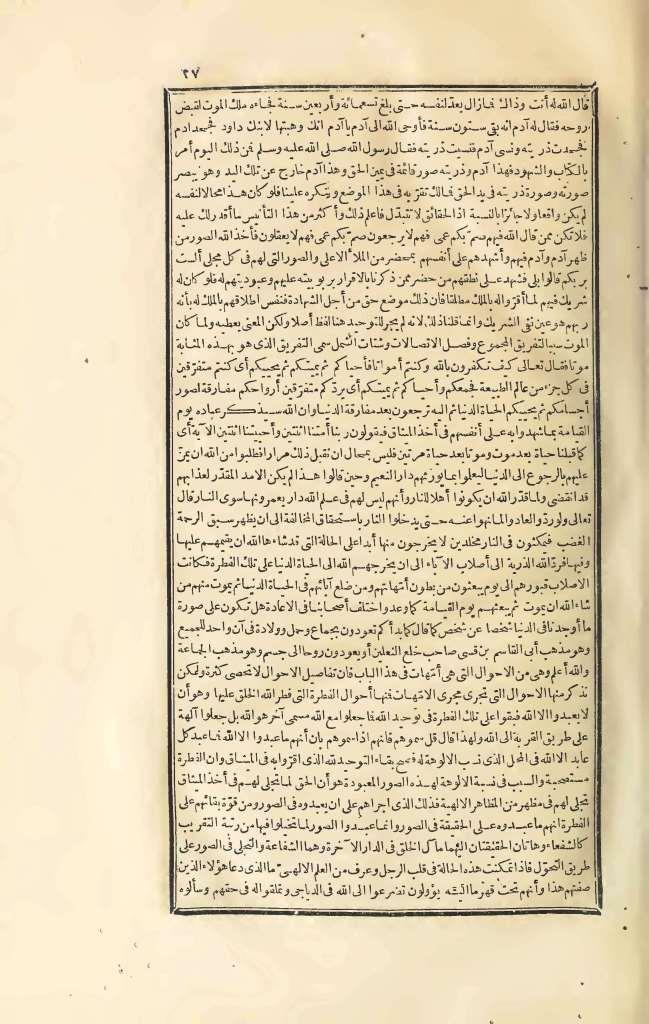 ٢٧
قال الله له أنت وذاك فمازال يعدّ لنفسه حتى بلغ تسعمائة وأربعين سنة فجاءه ملك الموت ليقبض
روحه فقال له آدم انه بقى ستون سنة فأوحى الله الى آدم يا آدم انك وهبتها لابنك داود فجحد آدم
فجحدت ذريته ونسى آدم فنسيت ذريته فقال رسول الله صلى الله عليه وسلم فمن ذلك اليوم أمر
بالكتاب والشهود فهذا آدم وذريته صور قائمة فى يمين الحق وهذا آدم خارج عن تلك اليد وهو يبصر
صورته وصورة ذريته فى يد الحق فمالك تقرّ به فى هذا الموضع وتنكره علينا فلو كان هذا محالا لنفسه
لم يكن واقعا ولا جائزا بالنسبة اذ الحقائق لا تتبدّل فاعلم ذلك وأكثر من هذا التأنيس ما أقدر لك عليه
فلا تكن ممن قال الله فيهم صمّ بكم عمى فهم لا يرجعون صمّ بكم عمى فهم لا يعقلون فأخذ الله الصور من
ظهر آدم وآدم فيهم وأشهدهم على أنفسهم بمحضر من الملأ الاعلى والصور التى لهم فى كل مجلى ألست
بربكم قالوا بلى فشهد على نطقهم من حضر ممن ذكرنا بالاقرار بربوبيته عليهم وعبوديتهم له فلو كان له
شريك فيهم لما أقرّوا له بالملك مطلقا فان ذلك موضع حق من أجل الشهادة فنفس اطلاقهم بالملك له بأنه
ربهم هو عين نفى الشريك وانما قلنا ذلك لانه لم يجر للتوحيد هنا لفظ أصلا ولكن المعنى يعطيه ولما كان
الموت سببا لتفريق المجموع وفصل الاتصالات وشتات الشمل سمى التفريق الذى هو بهذه المثابة
موتا فقال تعالى كيف تكفرون بالله وكنتم أمواتا فأحياكم ثم يميتكم ثم يحييكم أى كنتم متفرّقين
فى كل جزء من عالم الطبيعة فجمعكم وأحياكم ثم يميتكم أى يردّكم متفرّقين أرواحكم مفارقة لصور
أجسامكم ثم يحييكم الحياة الدنيا ثم اليه ترجعون بعد مفارقة الدنيا وان الله سيذكر عباده يوم
القيامة بما شهدوا به على أنفسهم فى أخذ الميثاق فيقولون ربنا أمتنا اثنتين وأحييتنا اثنتين الآية أى
كما قبلنا حياة بعد موت وموتا بعد حياة مرتين فليس بمحال ان نقبل ذلك مرارا فطلبوا من الله ان يمنّ
عليهم بالرجوع الى الدنيا ليعملوا بما يورثهم دار النعيم وحين قالوا هذا لم يكن الامد المقدّر لعذابهم
قد انقضى ولما قدّر الله ان يكونوا أهلا للنار وأنهم ليس لهم فى علم الله دار يعمرونها سوى النار قال
تعالى ولو ردّوا لعادوا لما نهوا عنه حتى يدخلوا النار باستحقاق المخالفة الى ان يظهر سبق الرحمة
الغضب فيمكثون فى النار مخلدين لا يخرجون منها أبدا على الحالة التى قد شاءها الله ان يقيمهم عليها
وفيها فردّ الله الذرية الى أصلاب الآباء الى ان يخرجهم الله الى الحياة الدنيا على تلك الفطرة فكانت
الاصلاب قبورهم الى يوم يبعثون من بطون أمّهاتهم ومن ضلع آبائهم فى الحياة الدنيا ثم يموت منهم من
شاء الله ان يموت ثم يبعثهم يوم القيامة كما وعد واختلف أصحابنا فى الاعادة هل تكون على صورة
ما أوجدنا فى الدنيا شخصا عن شخص كما قال كما بدأكم تعودون بجماع وحمل وولادة فى آن واحد للجميع
وهو مذهب أبى القاسم بن قسى صاحب خلع النعلين أو يعودون روحا الى جسم وهو مذهب الجماعة
والله أعلم وهى من الاحوال التى هى أمّهات فى هذا الباب فان تفاصيل الاحوال لا تحصى كثرة ولكن
نذكر منها الاحوال التى تجرى مجرى الامّهات فمنها أحوال الفطرة التى فطر الله الخلق عليها وهو أن
لا يعبدوا الا الله فبقوا على تلك الفطرة فى توحيد الله فما جعلوا مع الله مسمى آخر هو الله بل جعلوا آلهة
على طريق القربة الى الله ولهذا قال قل سموهم فانهم اذا سموهم بان أنهم ما عبدوا الا الله فما عبد كل
عابد الا الله فى المحل الذى نسب الالوهة له فصح بقاء التوحيد لله الذى اقرّوا به فى الميثاق وان الفطرة
مستصحبة والسبب فى نسبة الالوهة لهذه الصور المعبودة هو أن الحق لما تجلى لهم فى أخذ الميثاق
تجلى لهم فى مظهر من المظاهر الالهية فذلك الذى اجرأهم على ان يعبدوه فى الصور ومن قوّة بقائهم على
الفطرة انهم ما عبدوه على الحقيقة فى الصور وانما عبدوا الصور لما تخيلوا فيها من رتبة التقريب
كالشفعاء وهاتان الحقيقتان اليهما مآل الخلق فى الدار الآخرة وهما الشفاعة والتجلى فى الصور على
طريق التحوّل فاذا تمكنت هذه الحالة فى قلب الرجل وعرف من العلم الالهىّ ما الذى دعا هؤلاء الذين
صفتهم هذا وأنهم تحت قهر ما اليه يؤولون تضرّعوا الى الله فى الدياجى وتملقوا له فى حقهم وسألوه